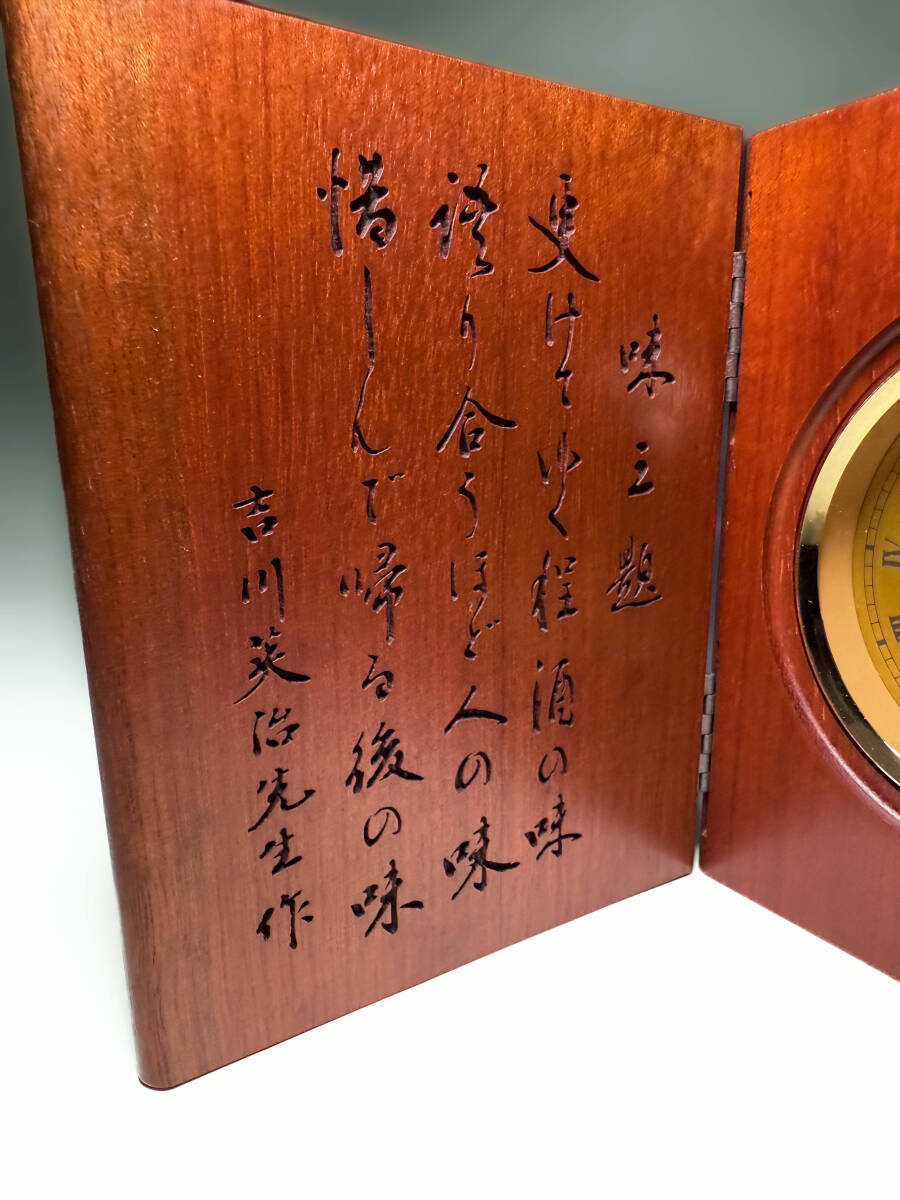 味三題
更けてゆく程酒の味
語り合うほど人の味
惜しんで帰る後の味
吉川英治先生作